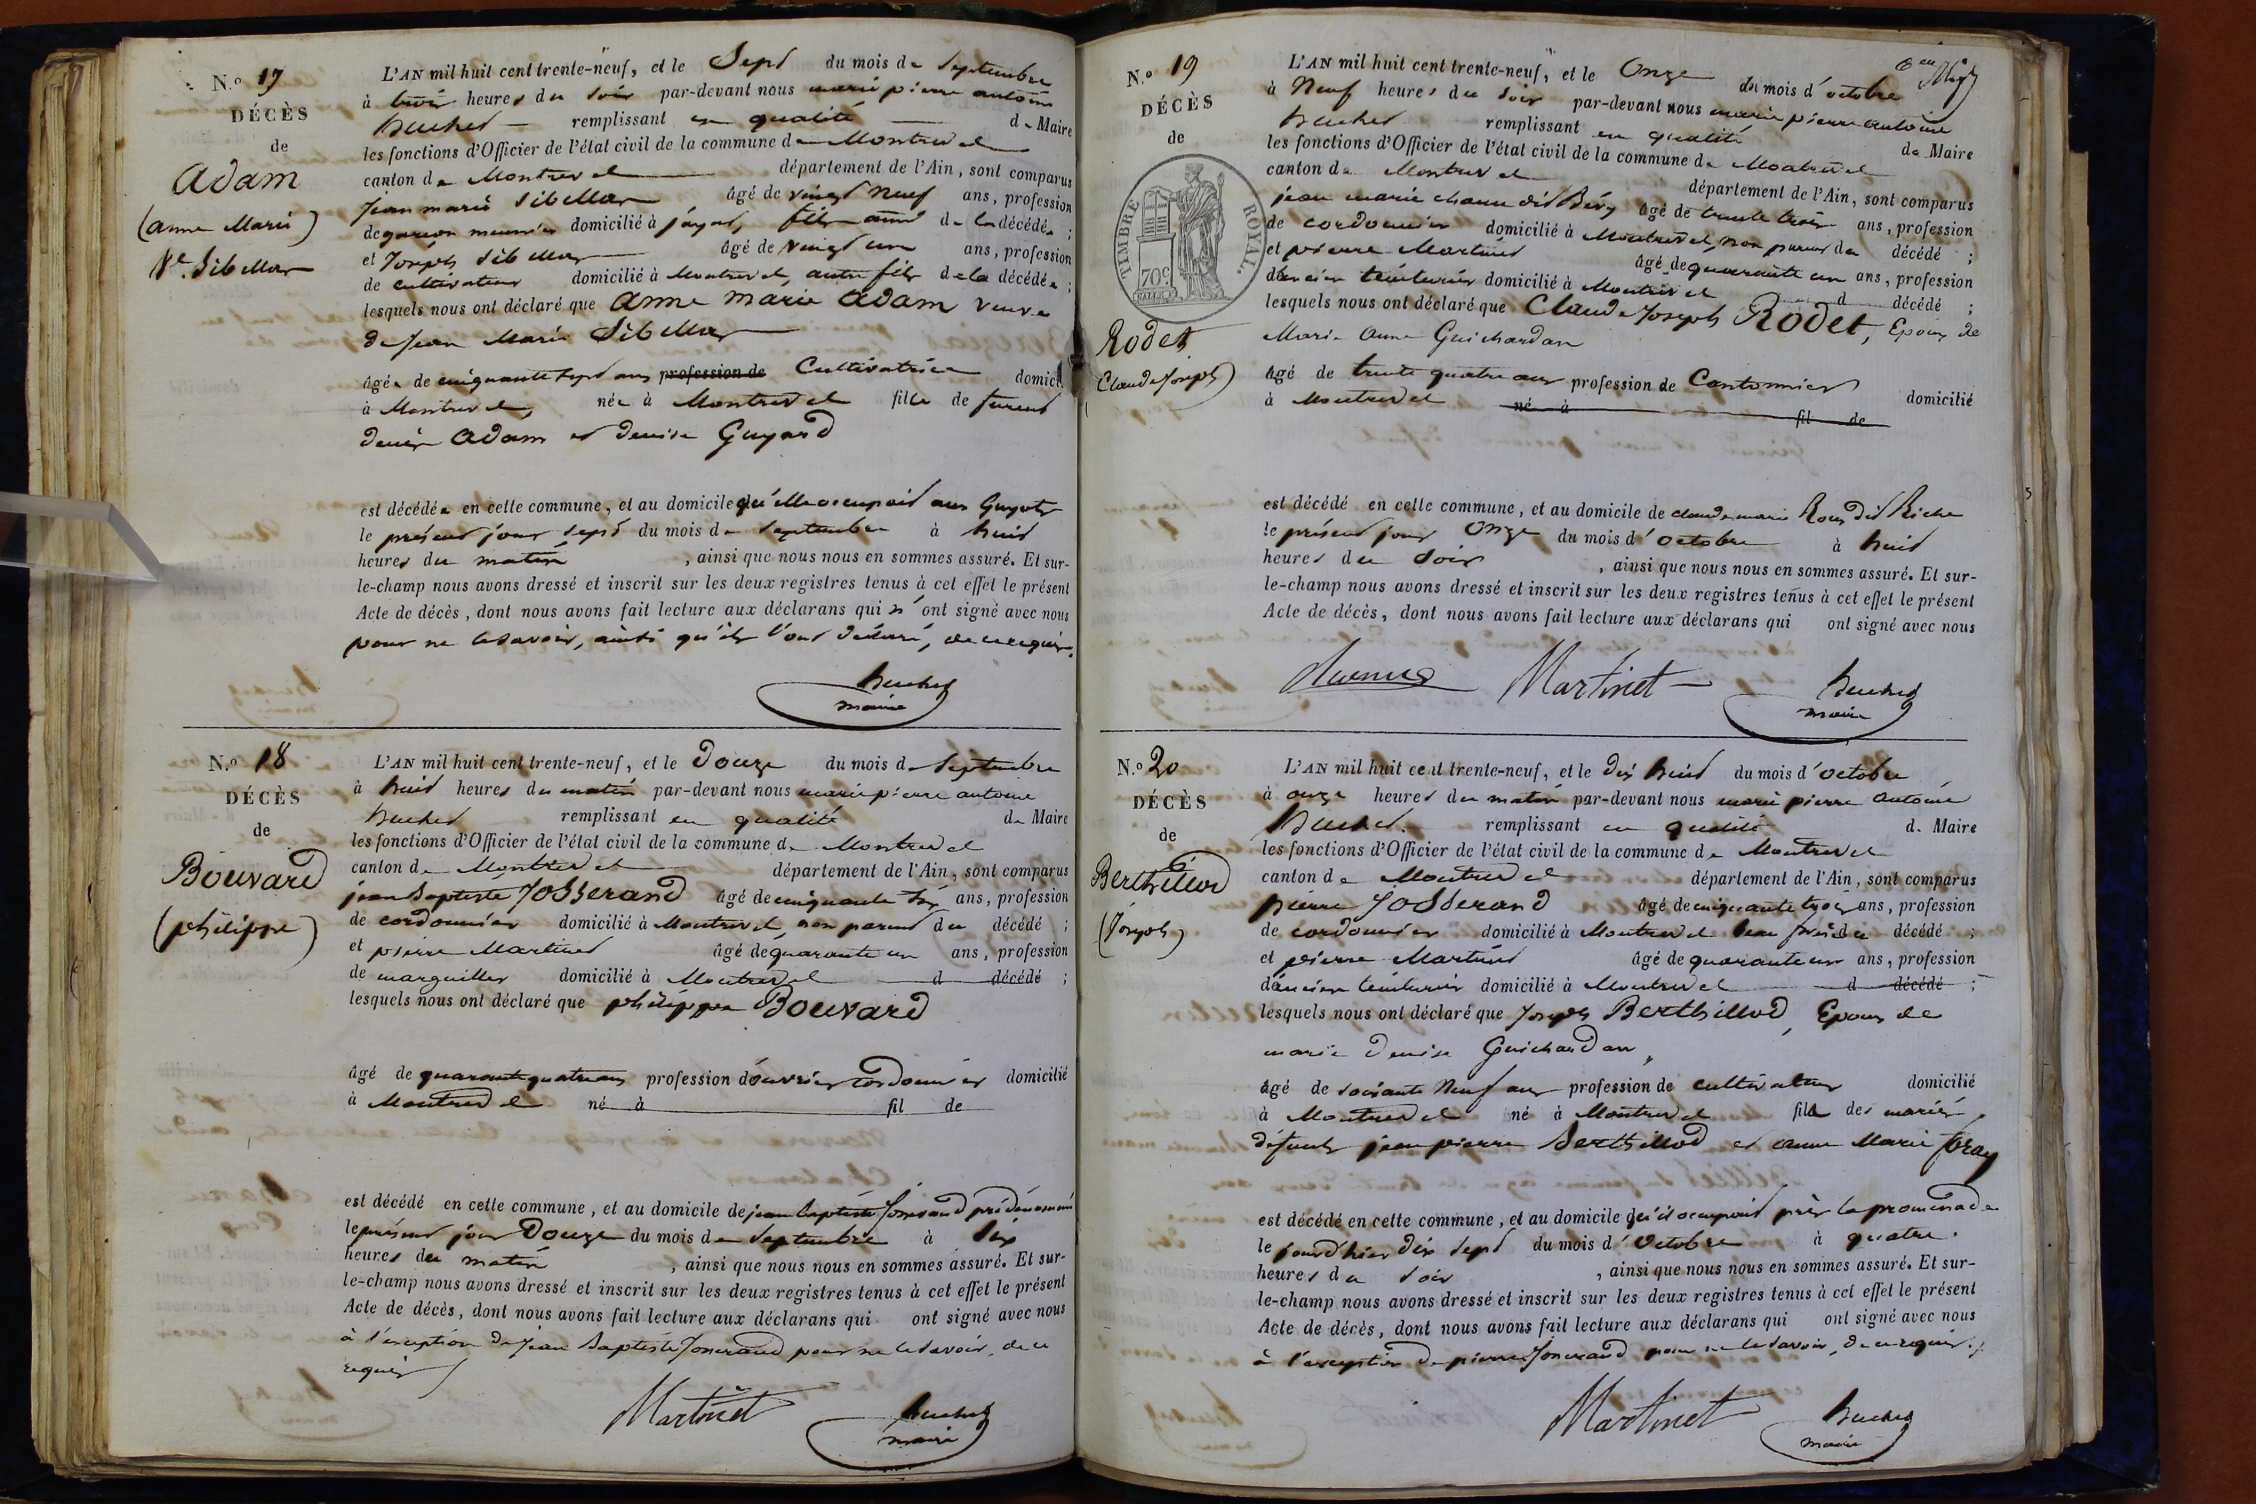 N.o 17
DÉCÈS
de
Adam
(anne Marie)
Ve. Sibellas
L'AN mil huit cent trente-neuf, et le Sept du mois de Septembre
à trois heures du soir par-devant nous marie pierre antoine
buchet remplissant en qualité de Maire
les fonctions d'Officier de l'état civil de la commune de Montrevel
canton de Montrevel département de l'Ain, sont comparus
Jean marie Sibellas âgé de vingt neuf ans, profession
de garcon meunier domicilié à jayat, fils ainé de la décédée ;
et Joseph Sibellas âgé de vingt un ans, profession
de cultivateur domicilié à Montrevel, autre fils de la décédée ;
lesquels nous ont déclaré que anne marie adam veuve
de Jean Marie Sibellas
âgée de cinquante sept ans profession de Cultivatrice domici
à Montrevel, née à Montrevel fille de furent
denis adam et denise Guyard
est décédée en cette commune, et au domicile qu'elle occupait aux Guyots
le présent jour sept du mois de septembre à huit
heures du matin , ainsi que nous nous en sommes assuré. Et sur-
le-champ nous avons dressé et inscrit sur les deux registres tenus à cet effet le présent
Acte de décès, dont nous avons fait lecture aux déclarans qui n'ont signé avec nous
pour ne le savoir, ainsi qu'ils l'ont déclaré, de ce requis.
buchet
maire
N.o 18
DÉCÈS
de
Bouvard
(philippe)
L'AN mil huit cent trente-neuf, et le Douze du mois de Septembre
à huit heures du matin par-devant nous marie pierre antoine
buchet remplissant en qualité de Maire
les fonctions d'Officier de l'état civil de la commune de Montrevel
canton de Montrevel département de l'Ain, sont comparus
jean baptiste Josserand âgé de cinquante six ans, profession
de cordonnier domicilié à Montrevel, non parent du décédé ;
et pierre Martinet âgé de quarante un ans, profession
de marguillier domicilié à Montrevel d décédé ;
lesquels nous ont déclaré que philippe Bouvard
âgé de quarante quatre ans profession d'ouvrier cordonnier domicilié
à Montrevel né à fil de
est décédé en cette commune, et au domicile de jean baptiste Josserand prédénommé
le présent jour Douze du mois de Septembre à six
heures du matin , ainsi que nous nous en sommes assuré. Et sur-
le-champ nous avons dressé et inscrit sur les deux registres tenus à cet effet le présent
Acte de décès, dont nous avons fait lecture aux déclarans qui ont signé avec nous
à l'exception de Jean Baptiste Josserand pour ne le savoir, de ce
requis
Martinet
buchet
maire
N.o 19
DÉCÈS
de
TIMBRE ROYAL.
70 c.
Rodet
(Claude Joseph)
L'AN mil huit cent trente-neuf, et le Onze du mois d'octobre
à Neuf heures du soir par-devant nous marie pierre antoine
buchet remplissant en qualité de Maire
les fonctions d'Officier de l'état civil de la commune de Montrevel
canton de Montrevel département de l'Ain, sont comparus
jean marie chanu dit Bévy âgé de trente trois ans, profession
de cordonnier domicilié à Montrevel, non parent du décédé ;
et pierre Martinet âgé de quarante un ans, profession
d'ancien teinturier domicilié à Montrevel d décédé ;
lesquels nous ont déclaré que Claude Joseph Rodet, Epoux de
Marie anne Guichardan
âgé de trente quatre ans profession de Cantonnier domicilié
à Montrevel né à fil de
est décédé en cette commune, et au domicile de claude marie Roux dit Riche
le présent jour Onze du mois d'octobre à huit
heures du soir , ainsi que nous nous en sommes assuré. Et sur-
le-champ nous avons dressé et inscrit sur les deux registres tenus à cet effet le présent
Acte de décès, dont nous avons fait lecture aux déclarans qui ont signé avec nous
Martinet
buchet
maire
N.o 20
DÉCÈS
de
Berthillod
(Joseph)
L'AN mil huit cent trente-neuf, et le dix huit du mois d'octobre
à onze heures du matin par-devant nous marie pierre antoine
Buchet. remplissant en qualité de Maire
les fonctions d'Officier de l'état civil de la commune de Montrevel
canton de Montrevel département de l'Ain, sont comparus
pierre Josserand âgé de cinquante trois ans, profession
de cordonnier domicilié à Montrevel beau frère du décédé ;
et pierre Martinet âgé de quarante un ans, profession
d'ancien teinturier domicilié à Montrevel d décédé ;
lesquels nous ont déclaré que Joseph Berthillod, Epoux de
marie Denise Guichardan,
âgé de soixante Neuf ans profession de cultivateur domicilié
à Montrevel né à Montrevel fils des mariés
défunts jean pierre Berthillod et anne Marie foray
est décédé en cette commune, et au domicile qu'il occupait près la promenade
le jour d'hier dix sept du mois d'Octobre à quatre
heures du soir , ainsi que nous nous en sommes assuré. Et sur-
le-champ nous avons dressé et inscrit sur les deux registres tenus à cet effet le présent
Acte de décès, dont nous avons fait lecture aux déclarans qui ont signé avec nous
à l'exception de pierre Josserand pour ne le savoir, de ce requis.
Martinet
buchet
maire